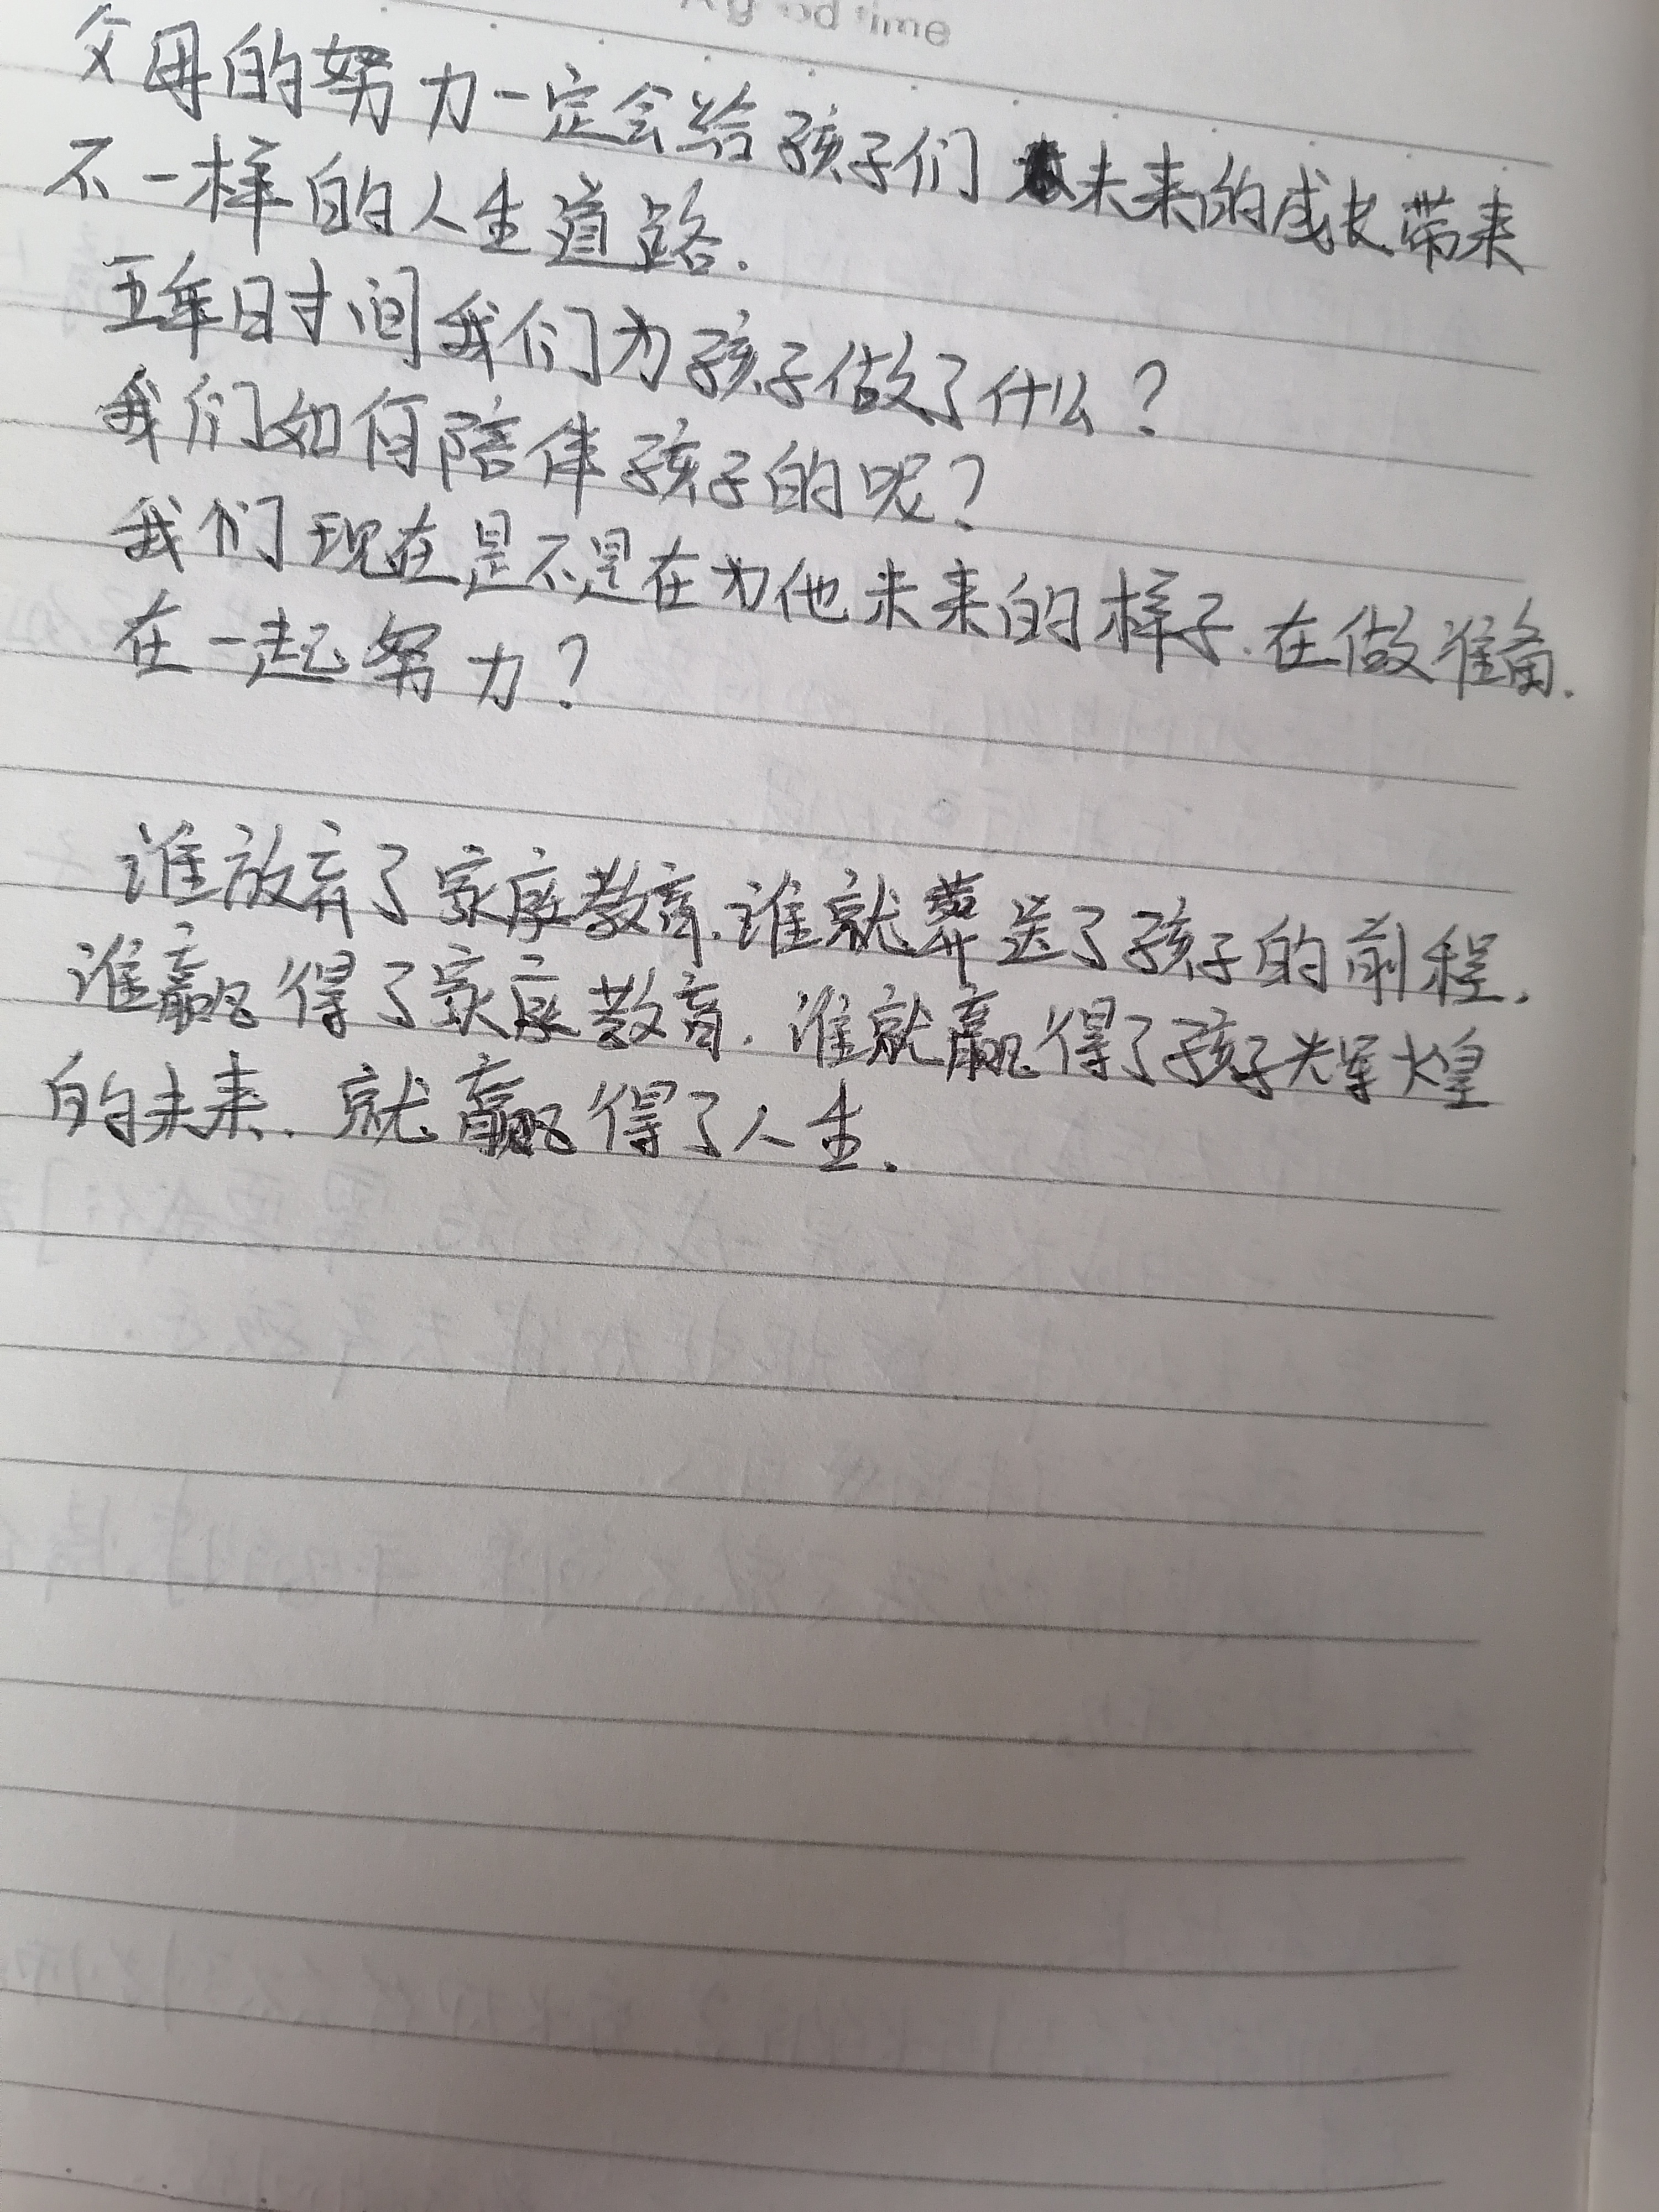 time
父母的努力一定会给孩子们未来的成长带来
不一样的人生道路.
五年时间我们为孩子做了什么?
我们如何陪伴孩子的呢?
我们现在是不是在为他未来的样子.在做准备.
在一起努力?
谁放弃了家庭教育.谁就葬送了孩子的前程.
谁赢得了家庭教育.谁就赢得了孩子辉煌
的未来.就赢得了人生.